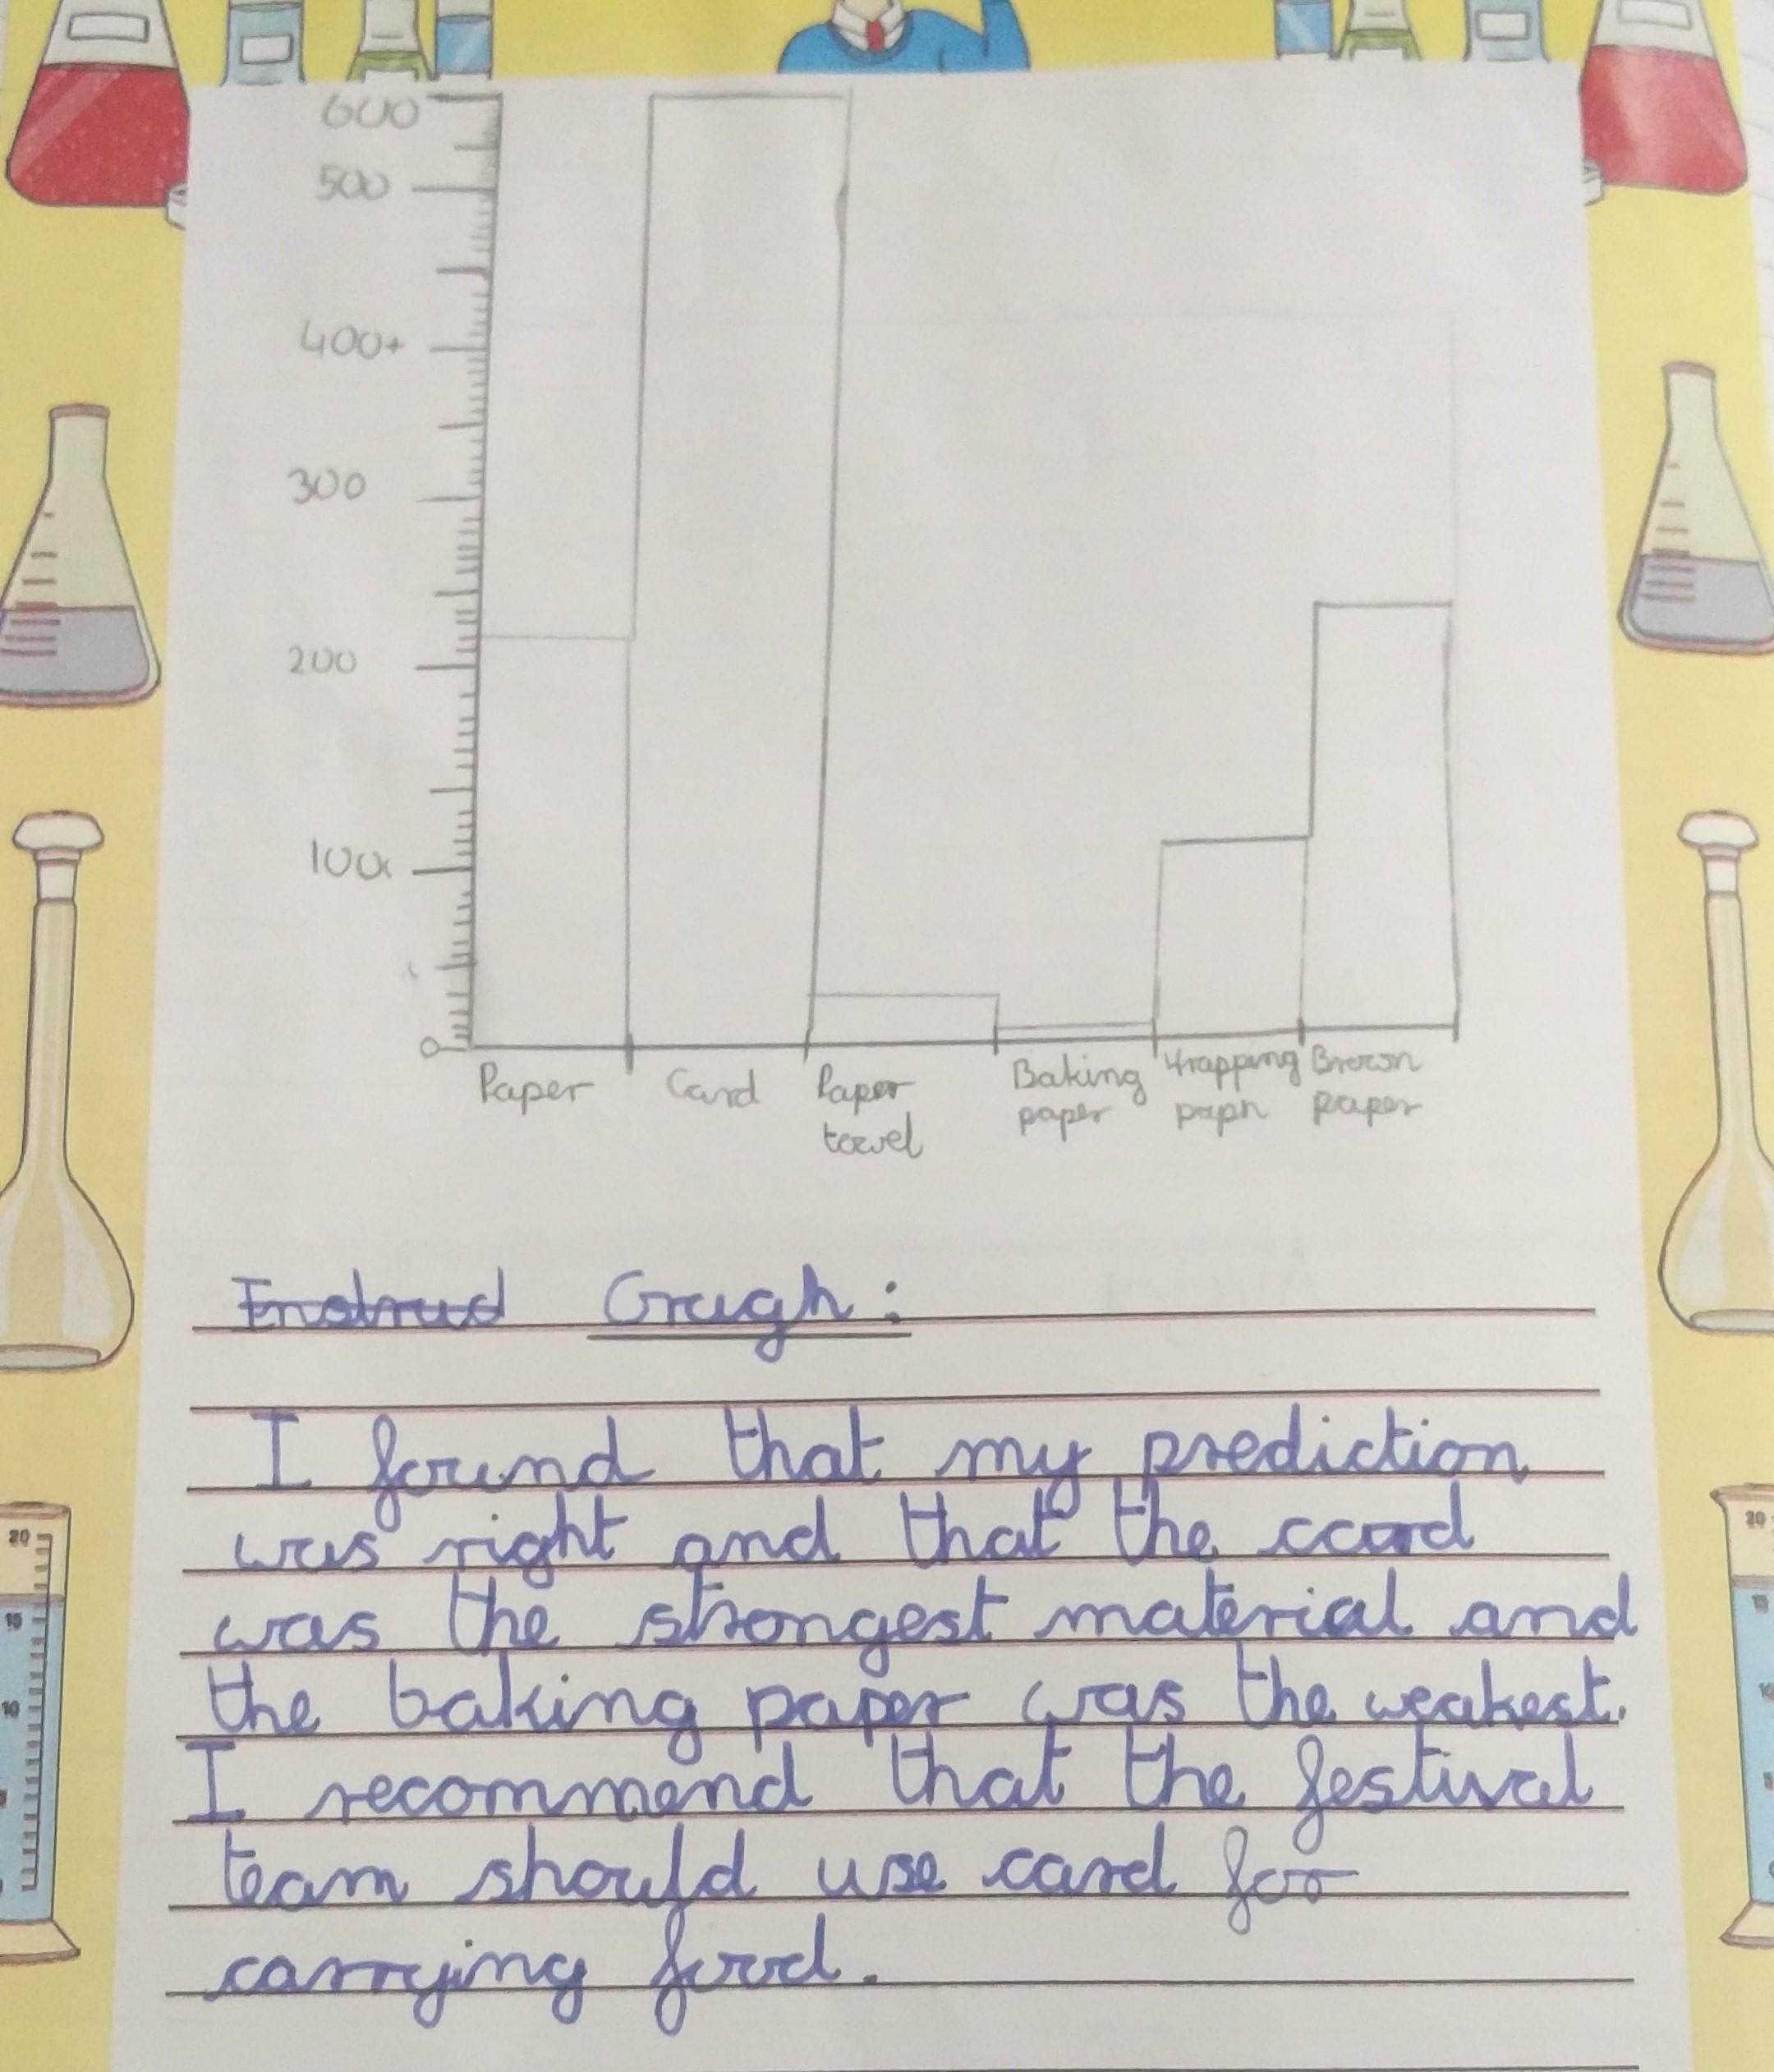 600
500
400+
300
200
100
0
Paper Card Paper towel Baking paper Wrapping paper Brown paper
Instrud Graph:
I found that my prediction
was right and that the ccard
was the strongest material and
the baking paper was the weakest.
I recommend that the festival
team should use card for
carrying food.
20
15
10
5
20
15
10
5